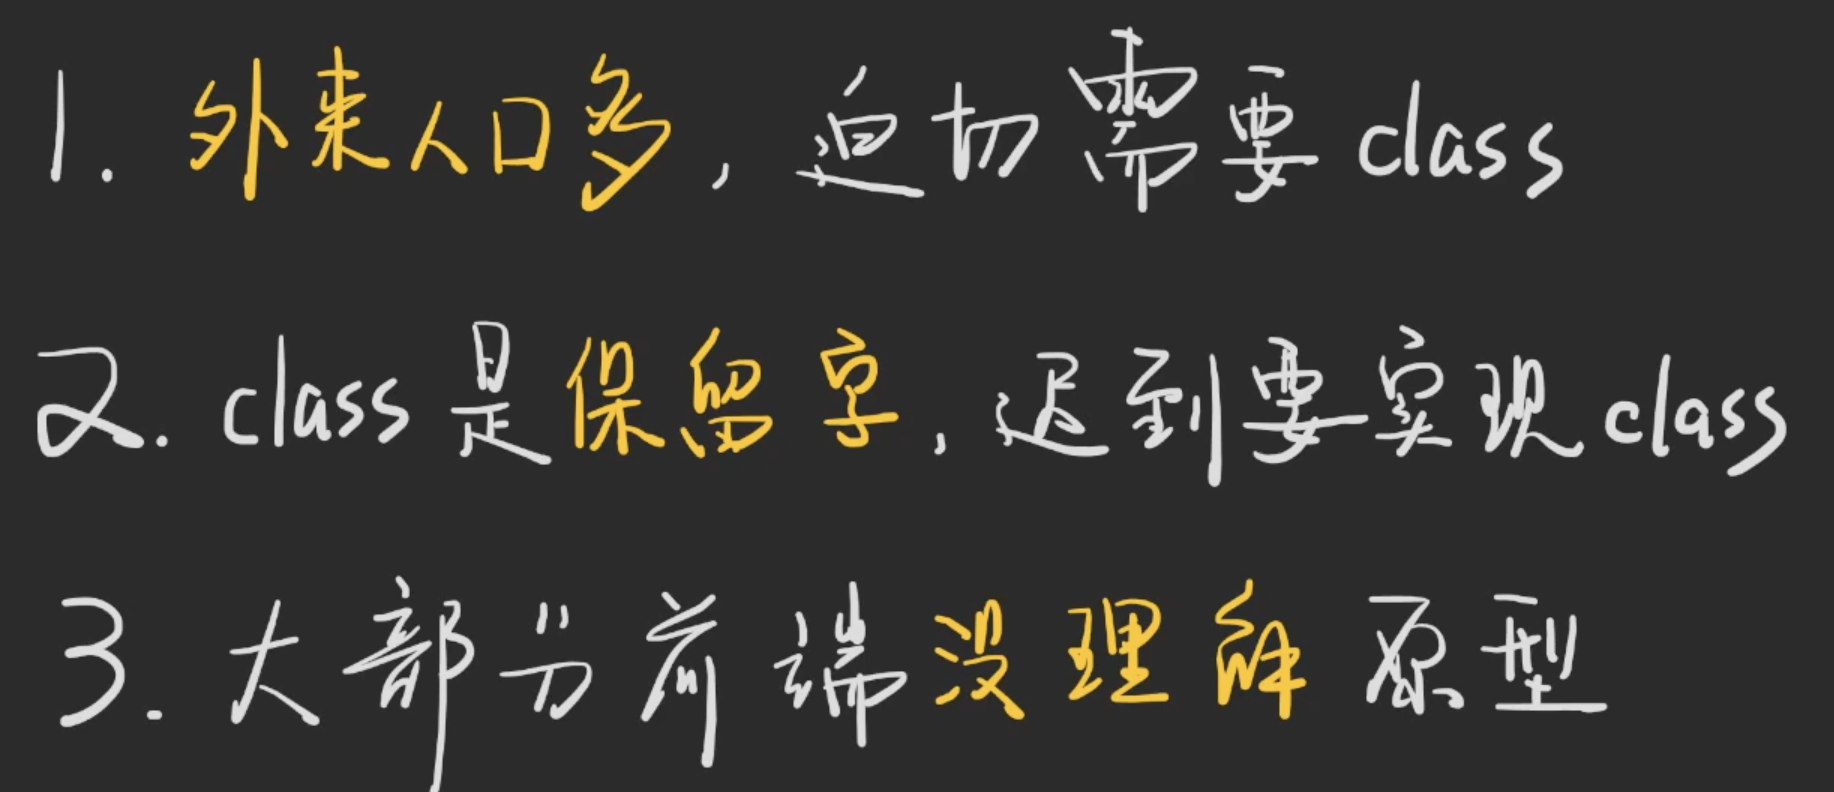 1. 外来人口多，迫切需要 class
2. class 是保留字，迟到要实现 class
3. 大部分前端没理解原型